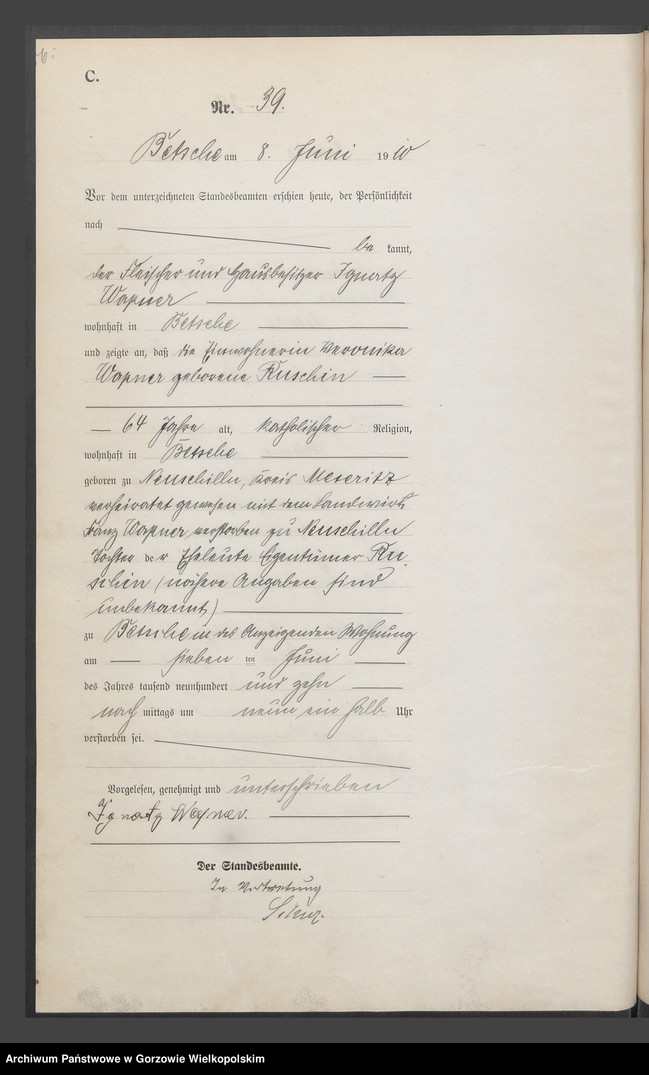 C.
Nr. 39.
Betsche am 8. Juni 1910
Vor dem unterzeichneten Standesbeamten erschien heute, der Persönlichkeit
nach
bekannt,
der Fleischer und Hausbesitzer Ignatz
Wapner
wohnhaft in Betsche
und zeigte an, daß die Einwohnerin Veronika
Wapner geborene Ruschin
64 Jahre alt, katholischer Religion,
wohnhaft in Betsche
geboren zu Neuschilln, Kreis Meseritz
verheiratet gewesen mit dem Landwirt
Franz Wapner, verstorben zu Neuschilln
Tochter der Eheleute Eigentümer Ru-
schin (nähere Angaben sind
unbekannt)
zu Betsche in des Anzeigenden Wohnung
am sieben ten Juni
des Jahres tausend neunhundert und zehn
nach mittags um neun ein halb Uhr
verstorben sei.
Vorgelesen, genehmigt und unterschrieben
Ignatz Wapner.
Der Standesbeamte.
In Vertretung
Archiwum Państwowe w Gorzowie Wielkopolskim